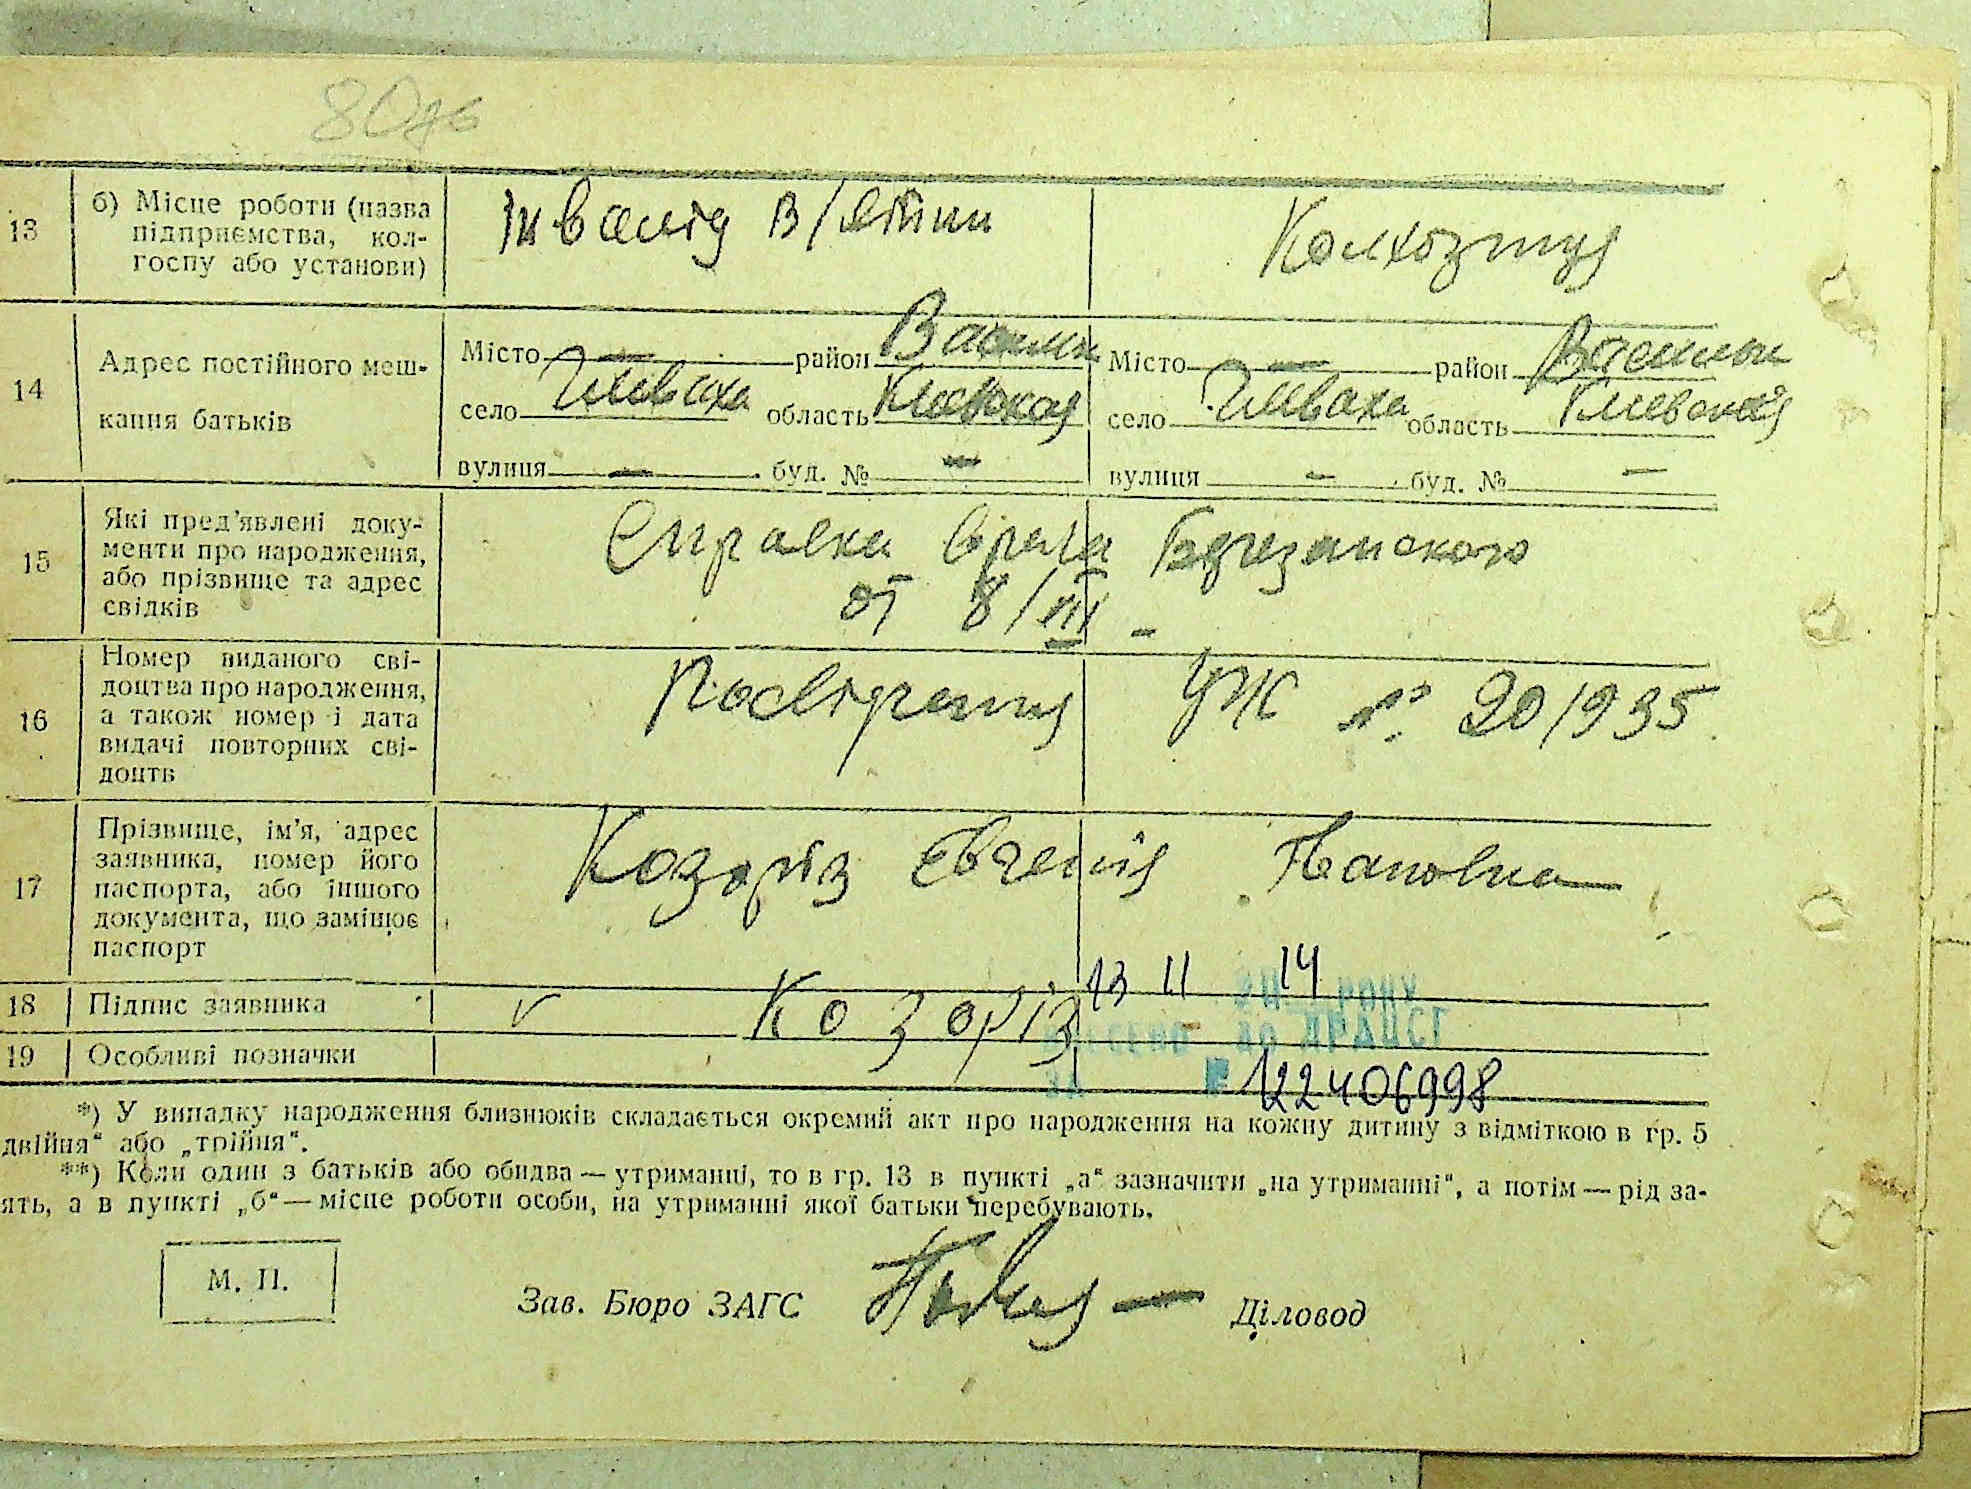 80дб
13
б) Місце роботи (назва
підприємства, кол-
госпу або установи)
Інвалід в/війни
Колхозниця
14
Адрес постійного меш-
кання батьків
Місто — район Васильк
село Глеваха область Киевская
вулиця — буд. № —
Місто — район Васильк
село Глеваха область Киевская
вулиця — буд. № —
15
Які пред’явлені доку-
менти про народження,
або прізвище та адрес
свідків
Справка врача Березанского
от 8/III —
16
Номер виданого сві-
доцтва про народження,
а також номер і дата
видачі повторних сві-
доцтв
УЖ № 201935
17
Прізвище, ім’я, адрес
заявника, номер його
паспорта, або іншого
документа, що замінює
паспорт
Козоріз Євгенія
18
Підпис заявника
Козоріз
13 11 14
20 РОКУ
19
Особливі позначки
ВНЕСЕНО ДО ДРАЦСГ
ЗА № 122406998
*) У випадку народження близнюків складається окремий акт про народження на кожну дитину з відміткою в гр. 5
двійня“ або „трійня“.
**) Коли один з батьків або обидва — утриманці, то в гр. 13 в пункті „а“ зазначити „на утриманні“, а потім — рід за-
ять, а в пункті „б“ — місце роботи особи, на утриманні якої батьки перебувають.
М. П.
Зав. Бюро ЗАГС
Діловод